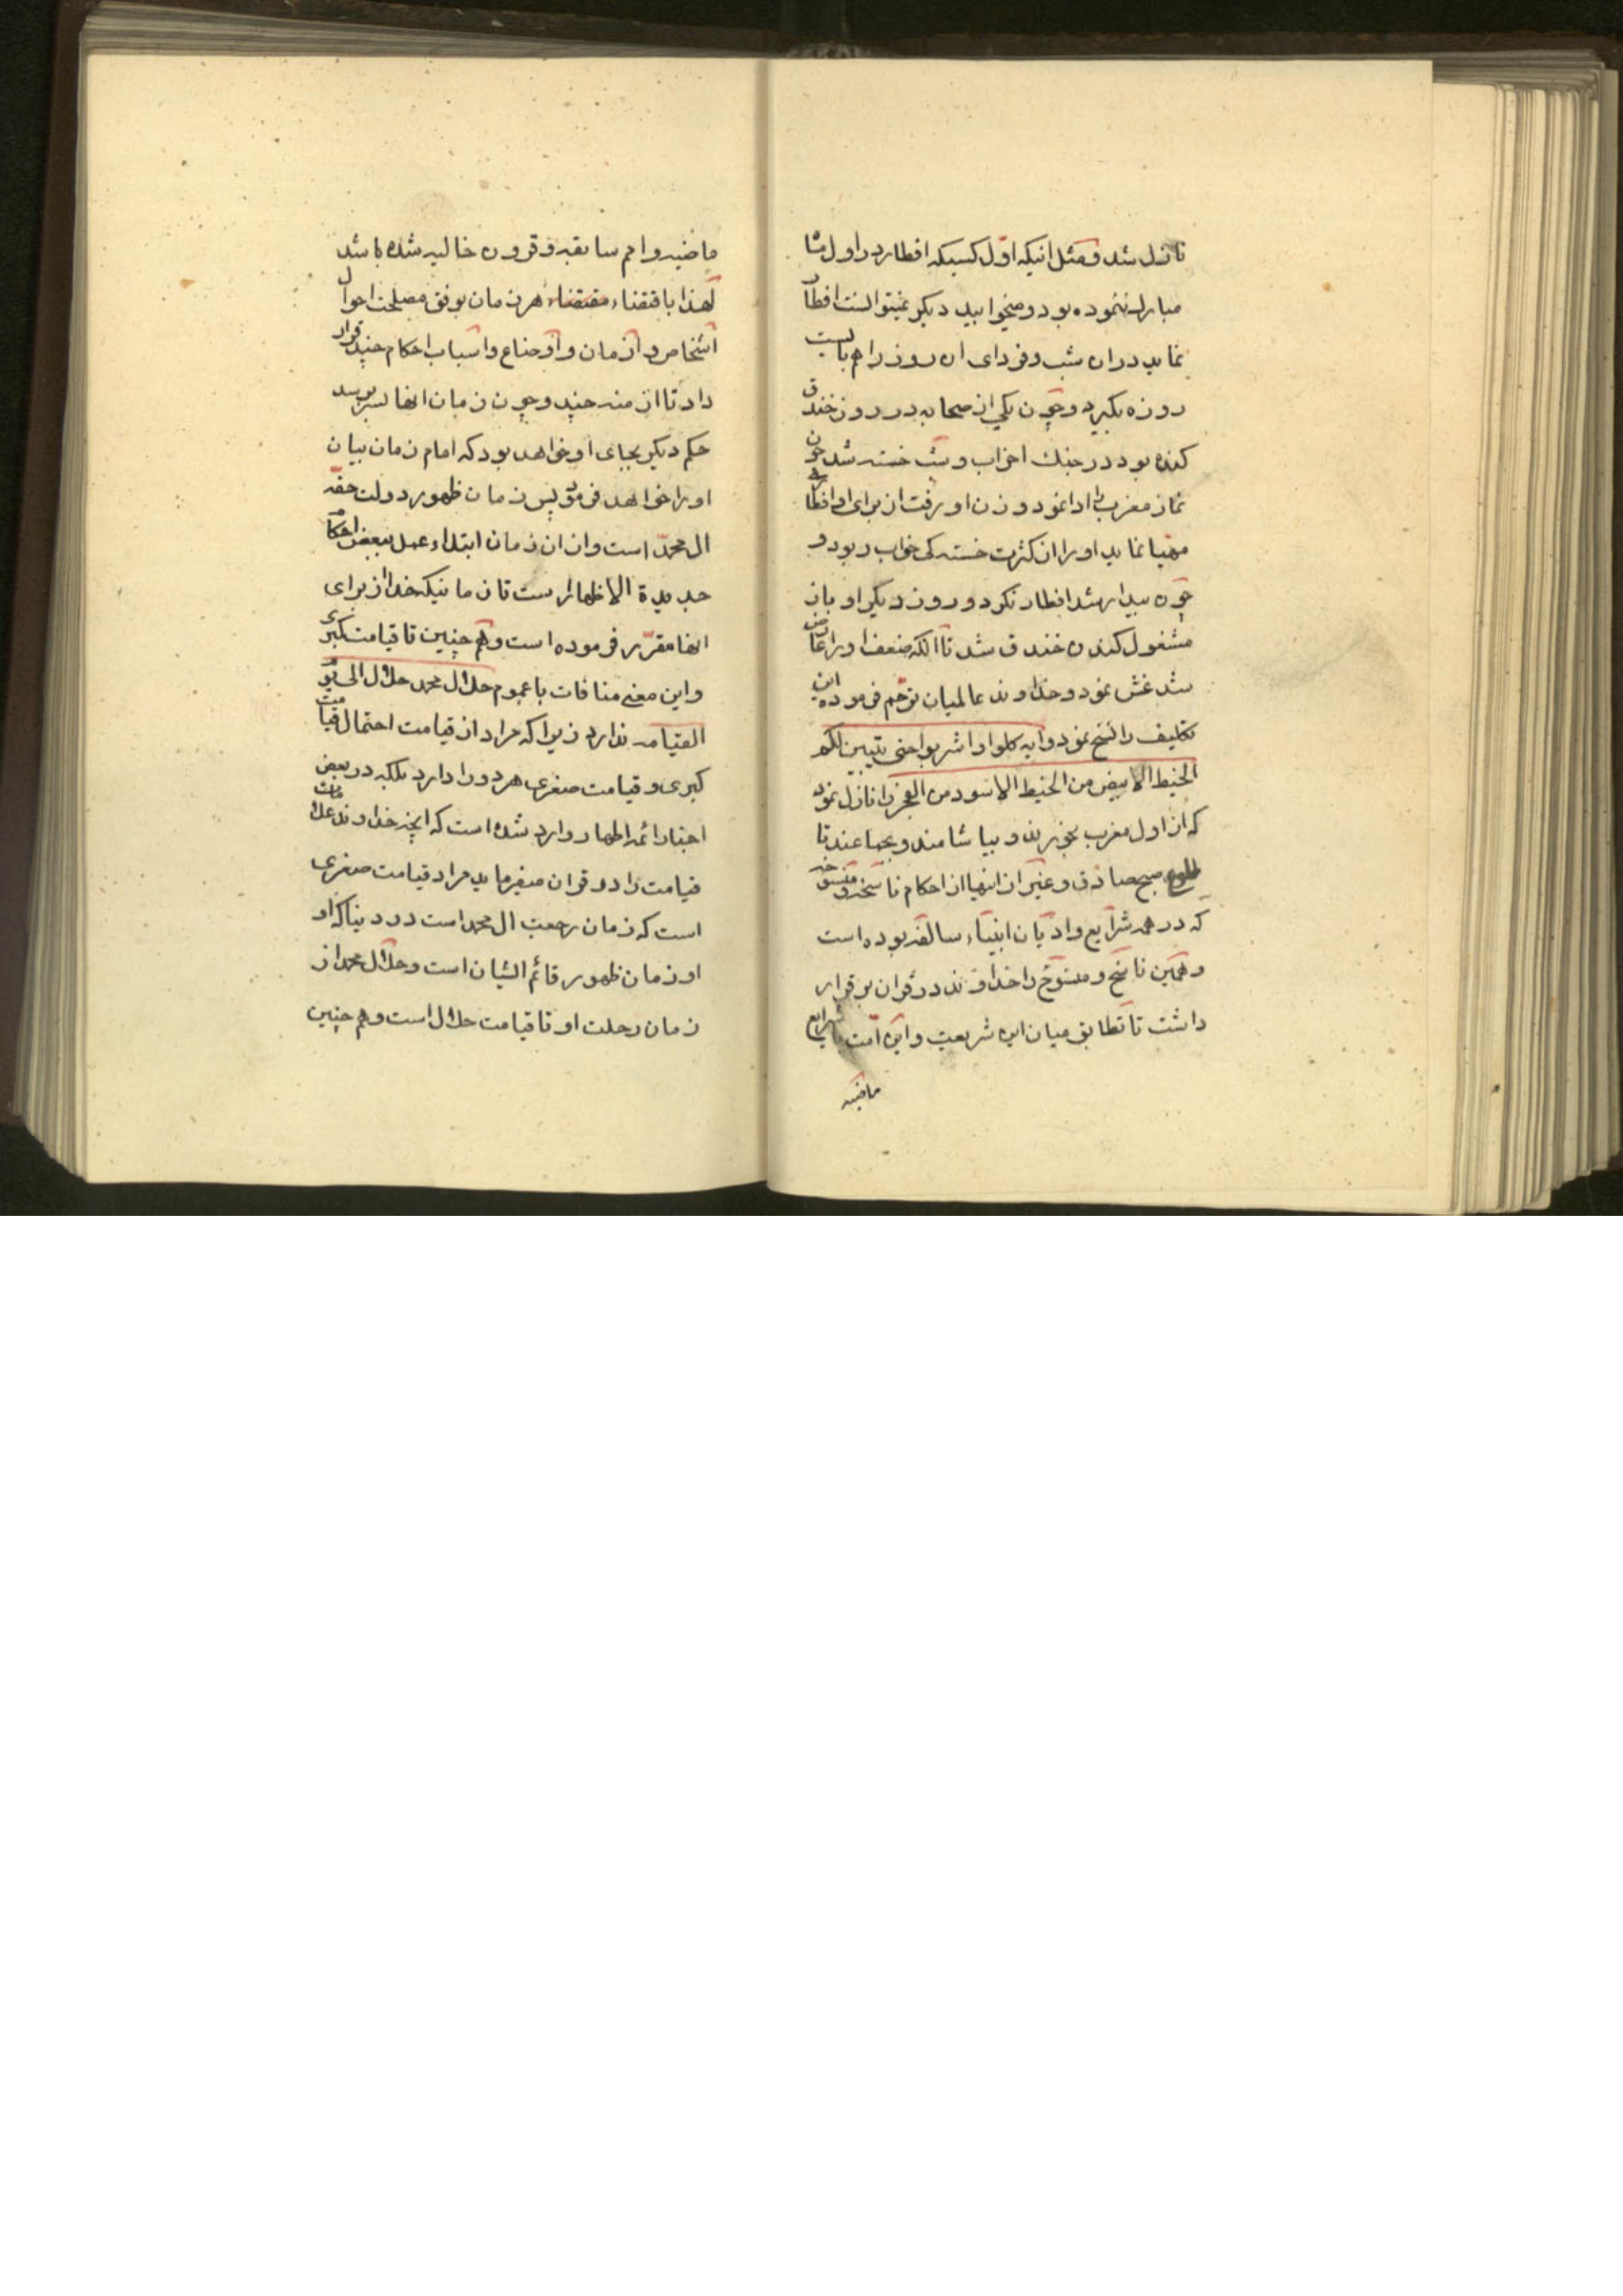 نازل شد و مثل انیکه اوّل کسیکه افطار در اول شا
مبارك ننموده بود و میخوابید دیگر نمیتوانست افطار
نماید در ان شب و فردای ان روز را هم بایست
روزه بگیرد و چون یکی از صحابه در روز خندق
کنده بود در جنك احزاب و شب خسته شد چون
نماز مغرب را ادا نمود و زن او رفت از برای او افطاری
مهیّا نماید او را از کثرت خسته کی خواب ربود و
چون بیدار شد افطار نکرد و روز دیگر او باز
مشغول کندن خندق شد تا انکه ضعف او را عارض
شد غش نمود و خداوند عالمیان ترحّم فرموده این
تکلیف را نسخ نمود و ایه کلوا و اشربوا حتی یتبین لکم
الخیط الابیض من الخیط الاسود من الفجر را نازل نمود
که از اول مغرب بخورند و بیاشامند و بجماعند تا
طلوع صبح صادق و غیر از اینها از احکام ناسخه و منسوخه
که در همه شرایع و ادیان انبیاء سالفه بوده است
و همین ناسخ و منسوخ را خداوند در قران برقرار
داشت تا تطابق میان این شریعت و این امّت با شرایع
ماضیه
ماضیه و امم سابقه و قرون خالیه شده باشد
لهذا باقتضاء مقتضاء هر زمان بوفق مصلحت احوال
اشخاص و ازمان و اوضاع و اسباب احکام چند قرار
داد تا ازمنه چند و چون زمان انها بسر برسد
حکم دیگر بجای او خواهد بود که امام زمان بیان
او را خواهد فرمود پس زمان ظهور دولت حقّه
ال محمّد است و ان زمان ابتداء عمل ببعض احکام
جدیدة الاظهار است تا زمانیکه خدا از برای
انها مقرّر فرموده است و هم چنین تا قیامت کبری
و این معنی منافات با عموم حلال محمد حلال الی یوم
القیامه ندارد زیرا که مراد از قیامت احتمال قیامت
کبری و قیامت صغری هر دو را دارد بلکه در بعض
اخبار ائمه اطهار وارد شده است که انچه خداوند علامات
قیامت را در قران میفرماید مراد قیامت صغری
است که زمان رجعت ال محمد است در دنیا که او
او زمان ظهور قائم ایشان است و حلال محمد از
زمان رحلت او تا قیامت حلال است و هم چنین